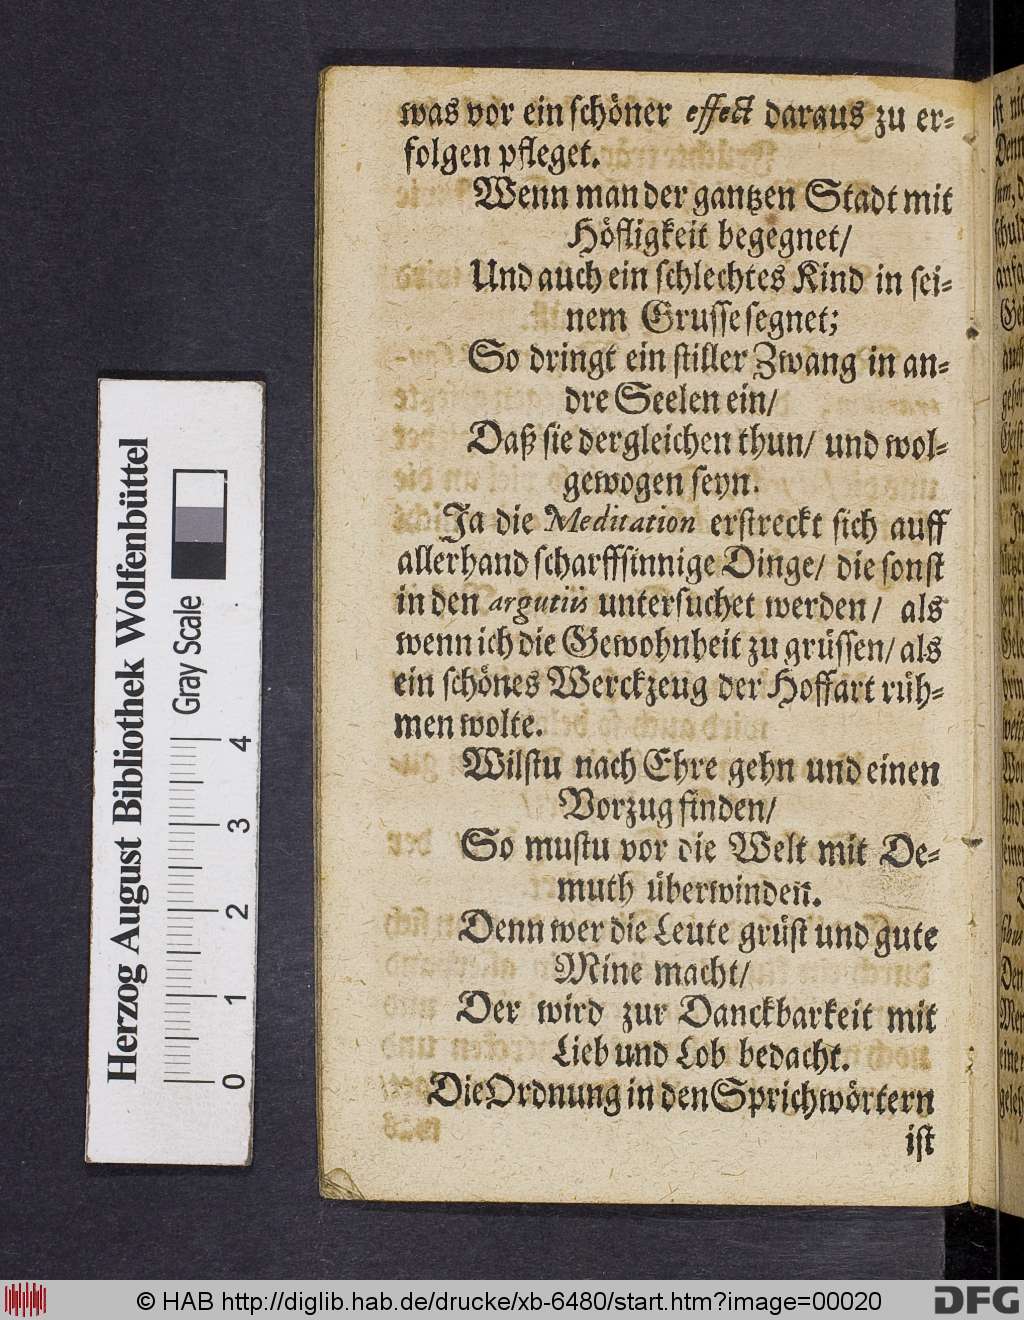 was vor ein schöner effect daraus zu er-
folgen pfleget.
Wenn man der gantzen Stadt mit
Höfligkeit begegnet/
Und auch ein schlechtes Kind in sei-
nem Grusse segnet;
So dringt ein stiller Zwang in an-
dre Seelen ein/
Daß sie dergleichen thun/ und wol-
gewogen seyn.
Ja die Meditation erstreckt sich auff
allerhand scharffsinnige Dinge/ die sonst
in den argutiis untersuchet werden/ als
wenn ich die Gewohnheit zu grüssen/ als
ein schönes Werckzeug der Hoffart rüh-
men wolte.
Wilstu nach Ehre gehn und einen
Vorzug finden/
So mustu vor die Welt mit De-
muth überwinden.
Denn wer die Leute grüst und gute
Mine macht/
Der wird zur Danckbarkeit mit
Lieb und Lob bedacht.
Die Ordnung in den Sprichwörtern
ist
Herzog August Bibliothek Wolfenbüttel
Gray Scale
0 1 2 3 4
© HAB http://diglib.hab.de/drucke/xb-6480/start.htm?image=00020
DFG